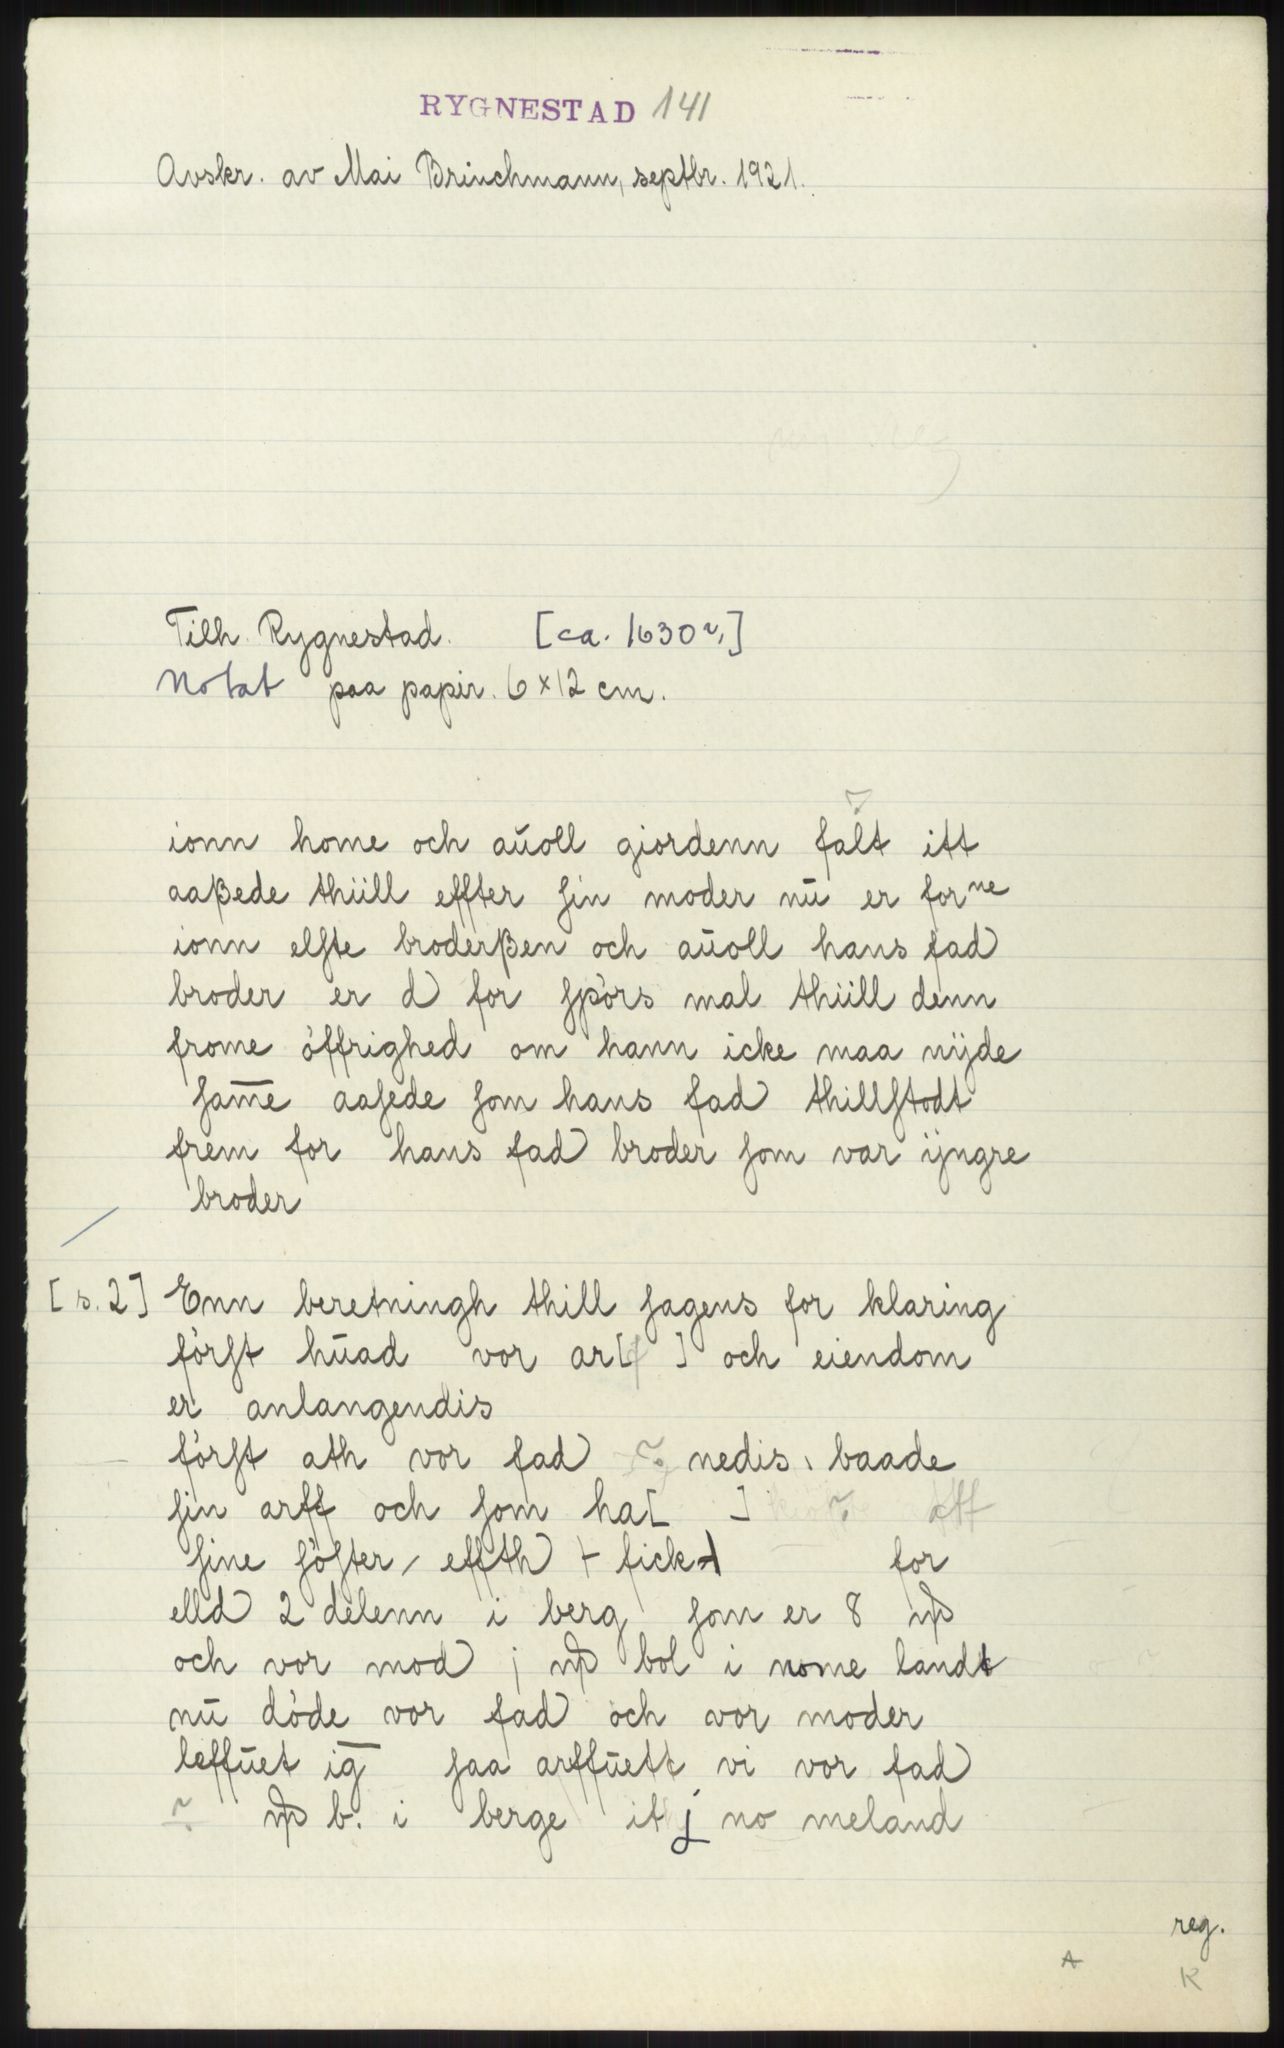 RYGNESTAD 141
Avskr. av Mai Brinchmann, septbr. 1921.
Tilh. Rygnestad. [ca. 1630?]
Notat paa papir. 6 x 12 cm.
ionn home och aŭoll giordenn falt itt
aaßede thiill effter sin moder nŭ er forne
ionn elste broderßen och aŭoll hans fad
broder er d for spörs mal thiill denn
frome öffrighed om hann icke maa nÿde
same aasede som hans fad thillstodt
frem for hans fad broder som var ÿngre
broder
[s. 2] Enn beretningh thill sagens for klaring
först hŭad vor ar[f ] och eiendom
er anlangendis
först ath vor fad ? nedis. baade
sin arff och som ha[ ] ? aff
sine söster / effth + fick for
elld 2 delenn i berg som er 8
och vor mod j bol i nome land
nŭ döde vor fad och vor moder
leffŭet ig saa arffŭett vi vor fad
? b. i berge it j no meland
reg.
A
K